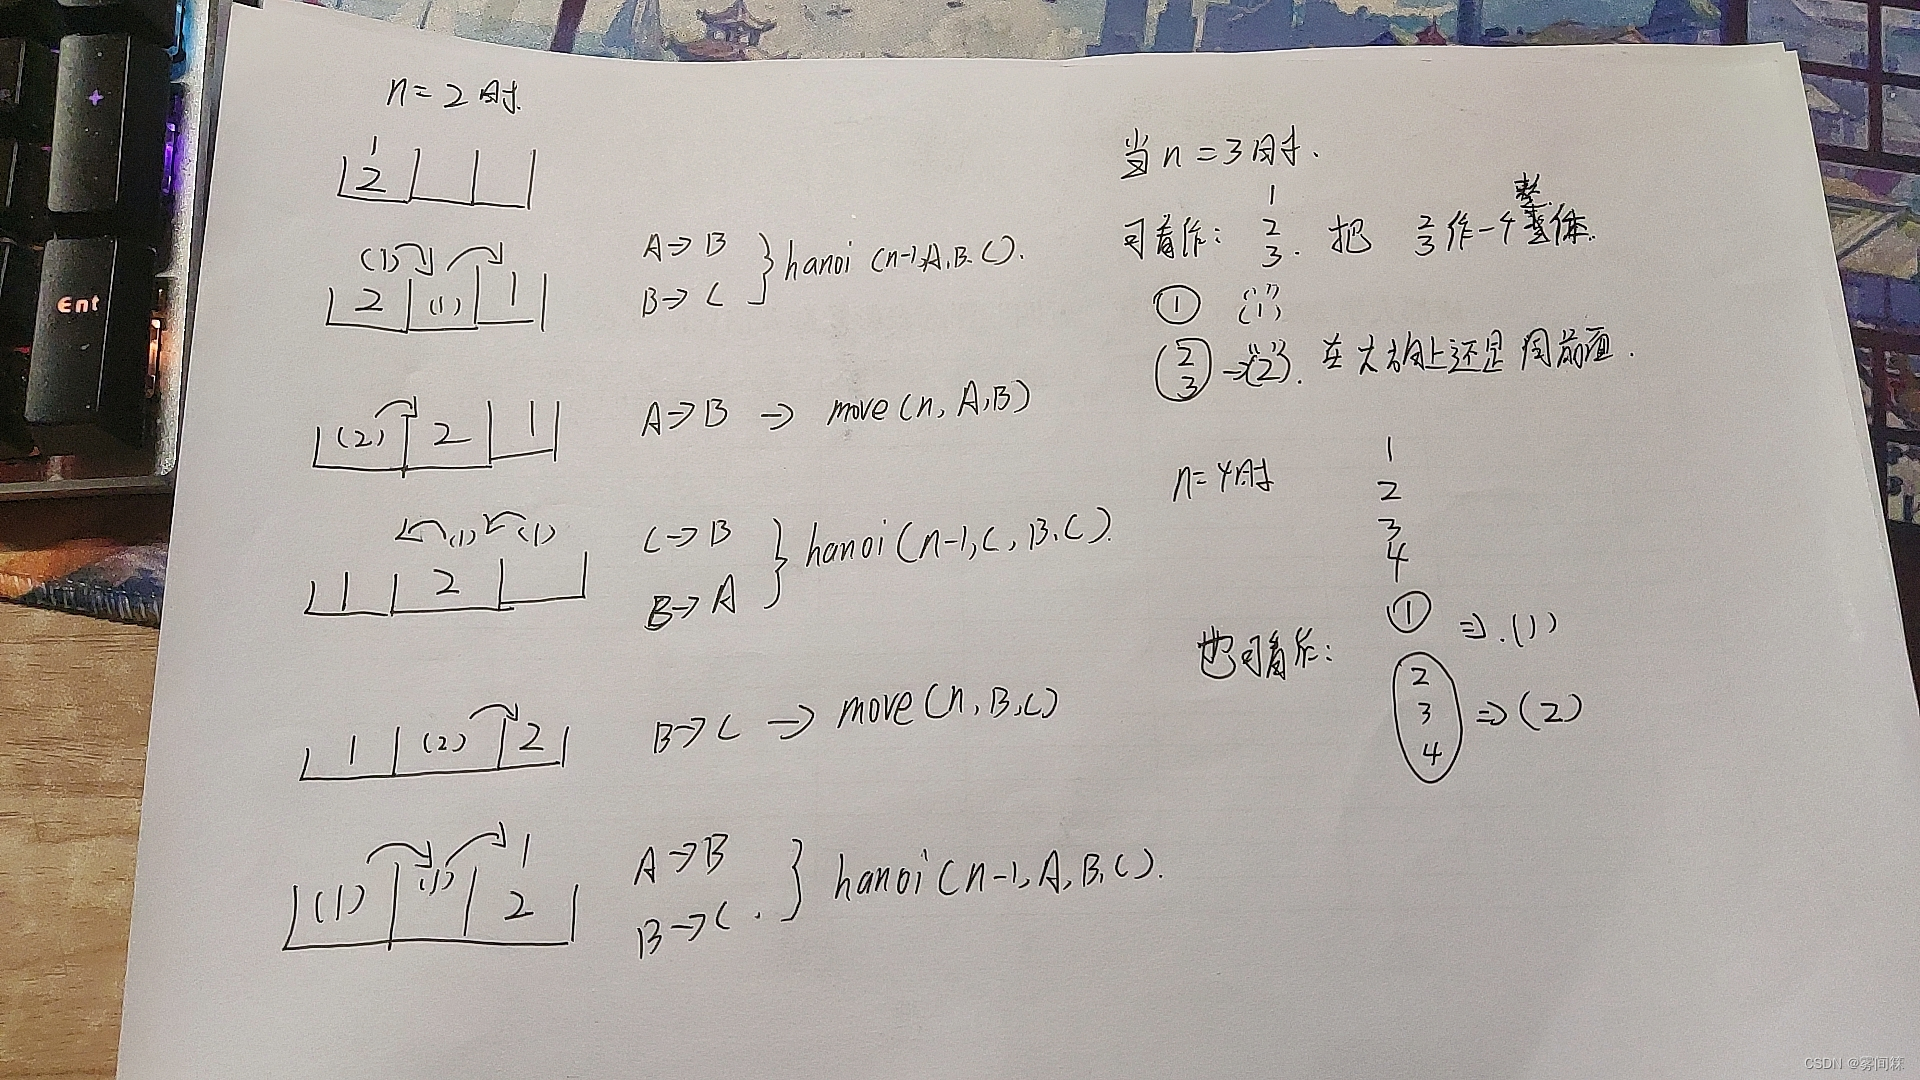 n=2时
1
2
(1)
2 (1) 1
A→B
B→C
hanoi (n-1,A,B,C).
(2) 2 1
A→B → move(n,A,B)
(1) (1)
1 2
C→B
B→A
hanoi(n-1,C,B,C).
1 (2) 2
B→C → move(n,B,C)
1
(1) (1) 2
A→B
B→C.
hanoi(n-1,A,B,C).
当n=3时.
1
可看作: 2 把 2 作一个整体.
3. 3
① (1)
2
3 → (2). 在大方向上还是同前面.
n=4时
1
2
3
4
也可看作:
① ⇒.(1)
2
3 ⇒(2)
4
+
Ent
CSDN @雾间箖